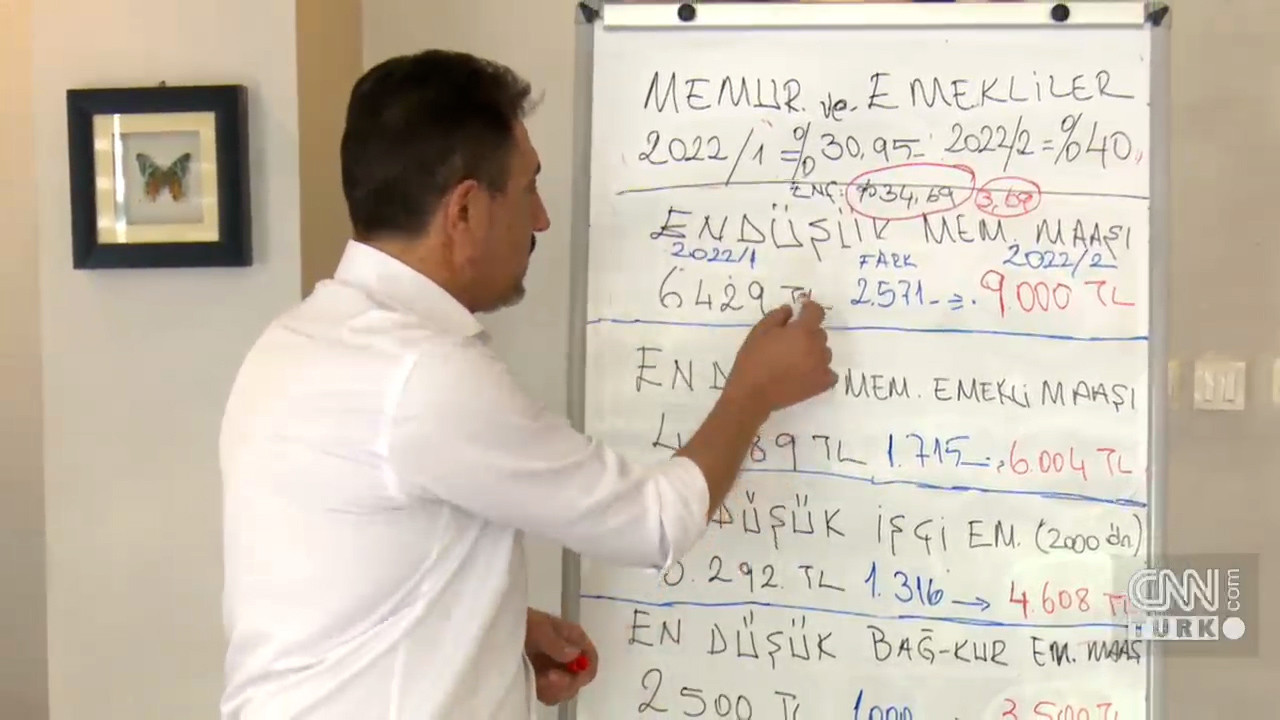 MEMUR ve EMEKLİLER
2022/1 = %30,95 2022/2 = %40
ENÇ: %34,69 3,69
EN DÜŞÜK MEM. MAAŞI
2022/1 FARK 2022/2
6429 TL 2.571 → 9.000 TL
EN MEM. EMEKLİ MAAŞI
89 TL 1.715 → 6.004 TL
DÜŞÜK İŞÇİ EM. (2000 ön)
.292 TL 1.316 → 4.608 TL
EN DÜŞÜK BAĞ-KUR EM. MAAŞ
2500 TL 1000 3.500 TL
CNN
TÜRK
.com